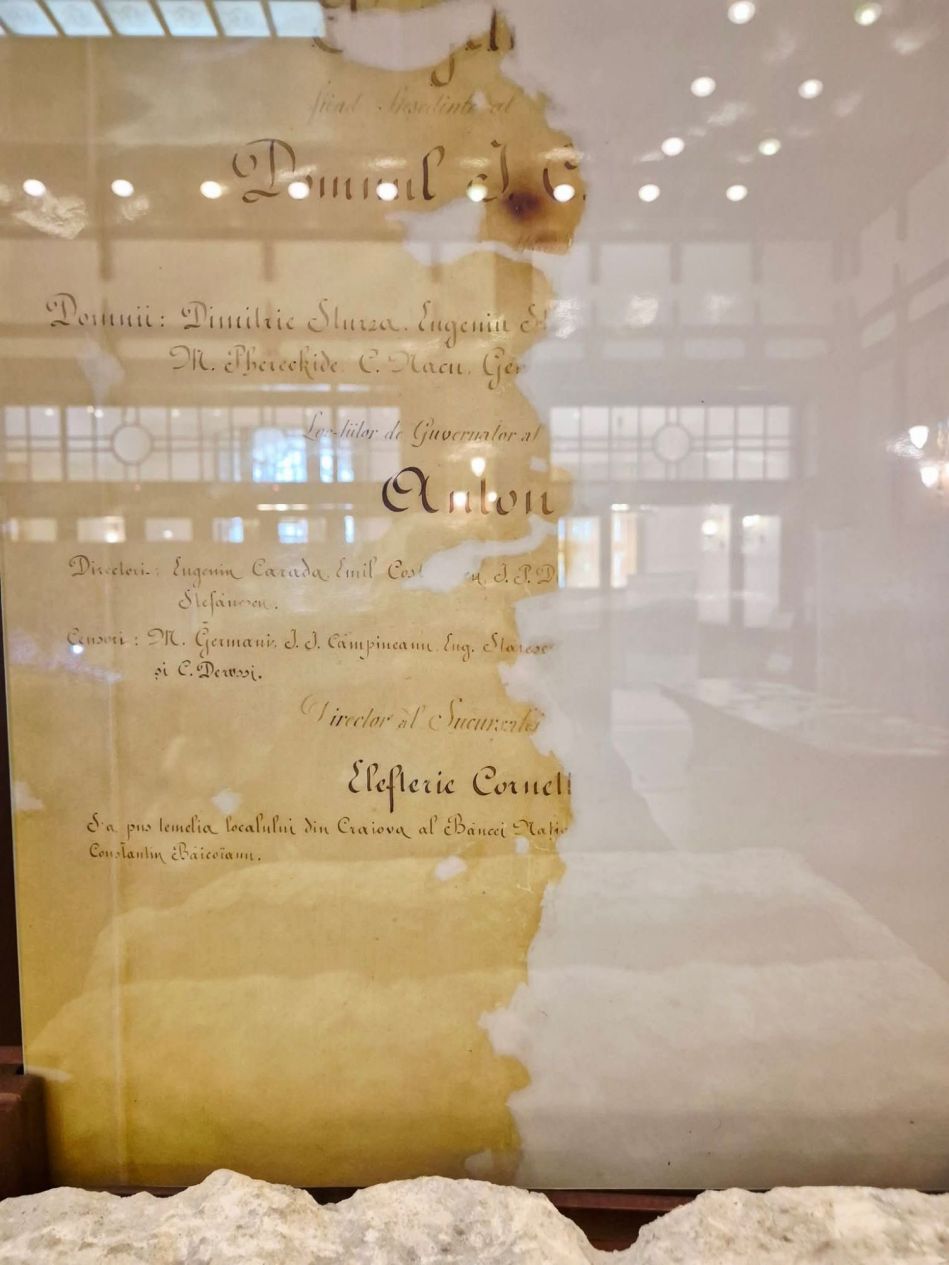 fiind Presedinte al
Domnul I. C.
Domnii: Dimitrie Sturza. Eugeniu St
M. Pherekide. C. Nacu. Ger
Loc-tiitor de Guvernator al
Anton
Directori: Eugeniu Carada. Emil Cost
Stefănescu.
Censori: M. Germani. I. I. Câmpineanu. Eug. Statesc
și C. Derussi.
Director al Sucursalei
Elefterie Cornet
S'a pus temelia localului din Craiova al Băncei Națio
Constantin Băicoianu.